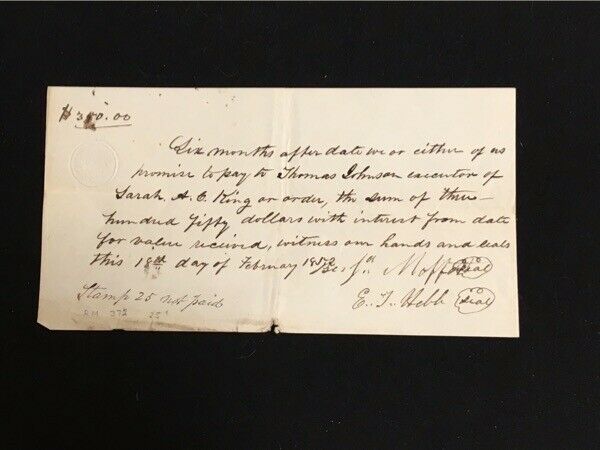 $350.00
Six months after date we or either of us
promise to pay to Thomas Johnson executor of
Sarah A. C. King or order, the sum of three
hundred fifty dollars with interest from date
for value received, witness our hands and seals
this 18th day of February
Seal
E. T. Webb Seal
Stamp 25 not paid